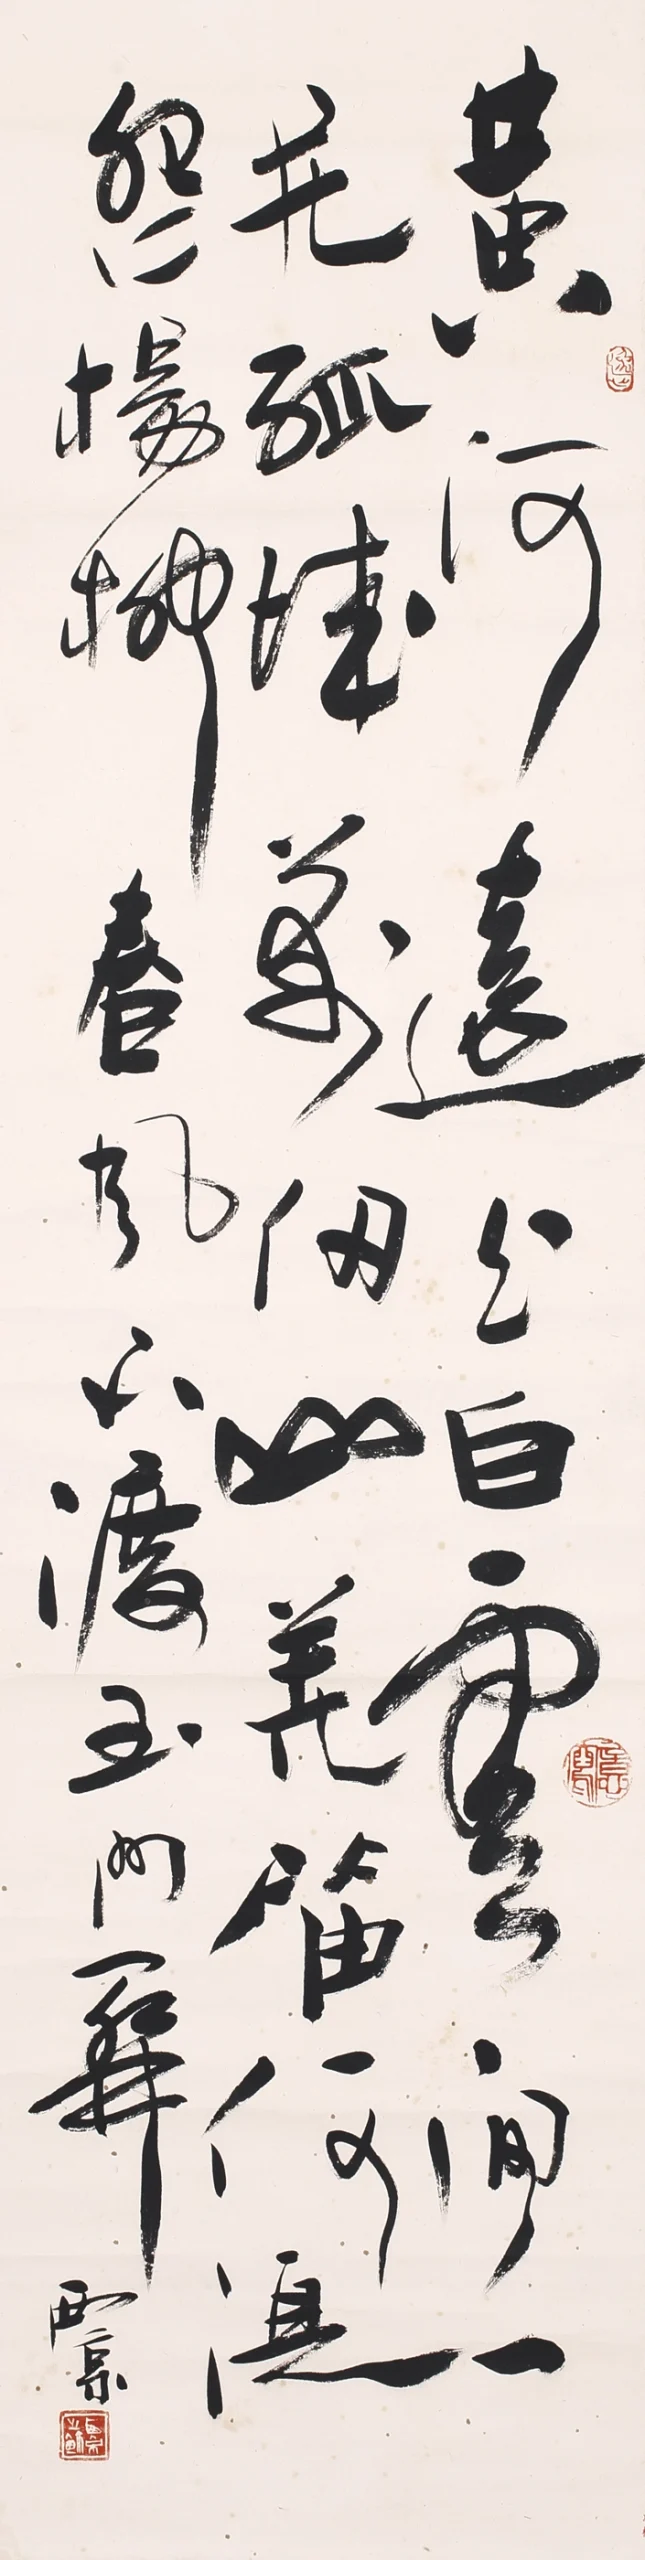 黃河遠上白雲間一
片孤城萬仞山羌笛何湏
怨楊柳春風不渡玉門關